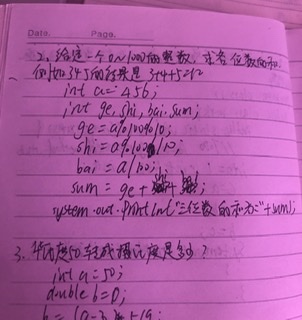 Date.          Page.
2、给定一个0~1000的整数，求各位数的和，
例如345的结果是3+4+5=12
int a=456;
int ge,shi,bai,sum;
ge=a%100%10;
shi=a%100/10;
bai=a/100;
sum = ge+shi+
system.out.println("三位数的和为="+sum);
3、华氏度50转成摄氏度是多少?
int a=50;
double b=0;